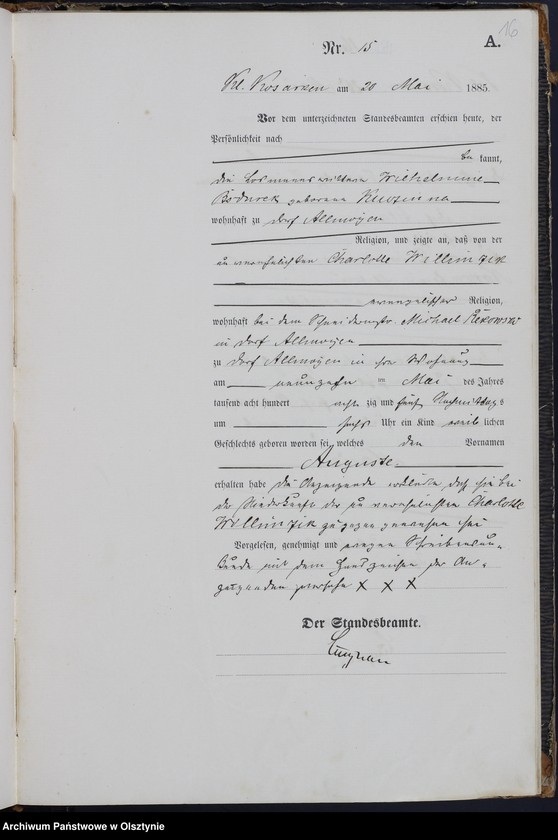 16
A.
Nr. 15
Kl. Rosainen am 20 Mai 1885.
Vor dem unterzeichneten Standesbeamten erschien heute, der
Persönlichkeit nach
be kannt,
die Losmannswittwe Wilhelmine
geborene
wohnhaft zu Dorf Allmoyen
Religion, und zeigte an, daß von der
unverehelichten Charlotte Willimzik
evangelischer Religion,
wohnhaft bei dem Michael
in Dorf Allmoyen
zu Dorf Allmoyen in ihre Wohnung
am neunzehn ten Mai des Jahres
tausend acht hundert acht zig und fünf Nachmittags
um sechs Uhr ein Kind weib lichen
Geschlechts geboren worden sei, welches den Vornamen
Auguste
erhalten habe die Anzeigende erklärte, daß sie bei
der Niederkunft der unverehelichten Charlotte
Willimzik zugegen gewesen sei
Vorgelesen, genehmigt und wegen Schreibensun-
kunde mit dem Handzeichen der An-
zeigenden versehen X X X
Der Standesbeamte.
Archiwum Państwowe w Olsztynie